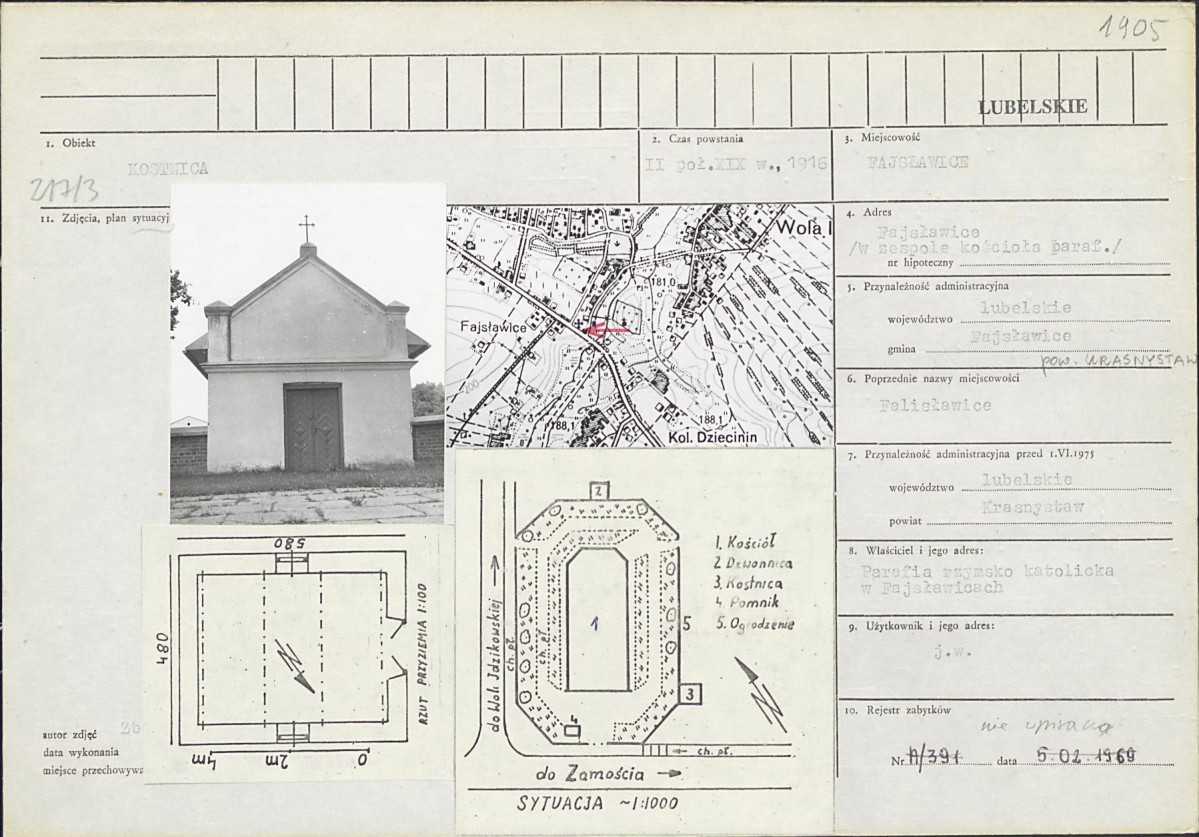 1905
LUBELSKIE
1. Obiekt
KOSTNICA
217/3
2. Czas powstania
II poł.XIX w., 1916
3. Miejscowość
FAJSŁAWICE
11. Zdjęcia, plan sytuacyj
4. Adres
Fajsławice
/w zespole kościoła paraf./
nr hipoteczny
5. Przynależność administracyjna
województwo lubelskie
gmina Fajsławice
pow. KRASNYSTAW
6. Poprzednie nazwy miejscowości
Falisławice
7. Przynależność administracyjna przed 1.VI.1975
województwo lubelskie
powiat Krasnystaw
8. Właściciel i jego adres:
Parafia rzymsko katolicka
w Fajsławicach
9. Użytkownik i jego adres:
j.w.
10. Rejestr zabytków
Nr A/391 data 5.02.1969
Wola I
181,0
Fajsławice
200
188,1
188,1
200
Kol. Dziecinin
580
480
RZUT PRZYZIEMIA 1:100
4m 2m 0
do Woli Idzikowskiej
ch. pł.
ch. pł.
2
1
5
3
4
1. Kościół
2 Dzwonnica
3. Kostnica
4. Pomnik
5. Ogrodzenie
ch. pł.
do Zamościa
SYTUACJA ~1:1000
autor zdjęć
data wykonania
miejsce przechowywa